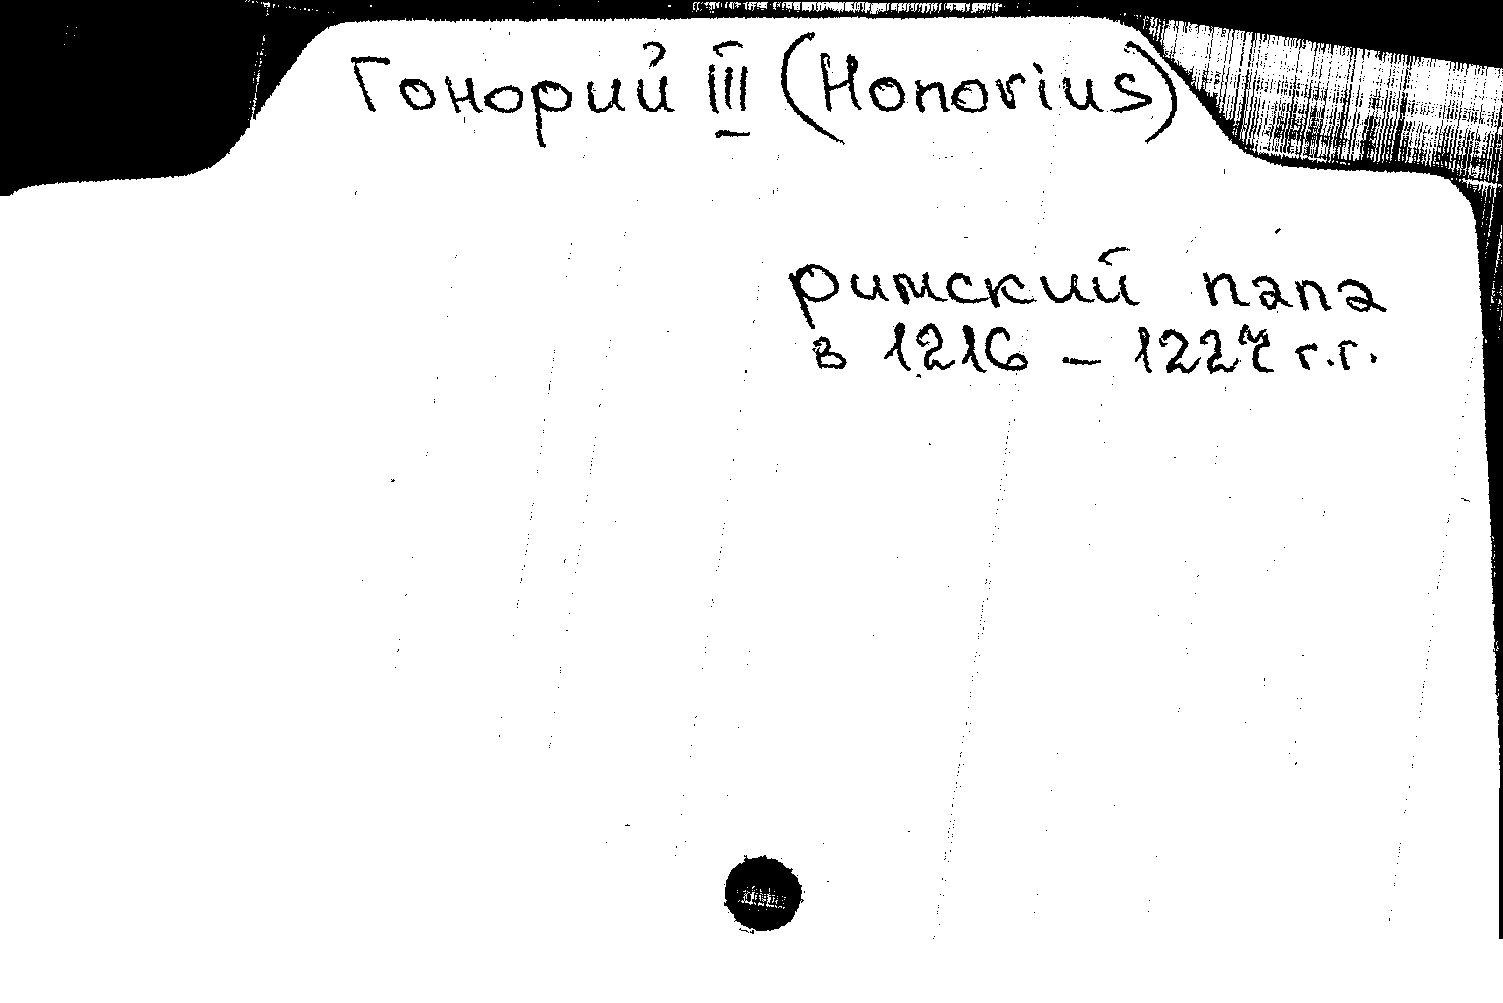 Гонорий III (Honorius)
римский папа
в 1216 – 1227 г.г.